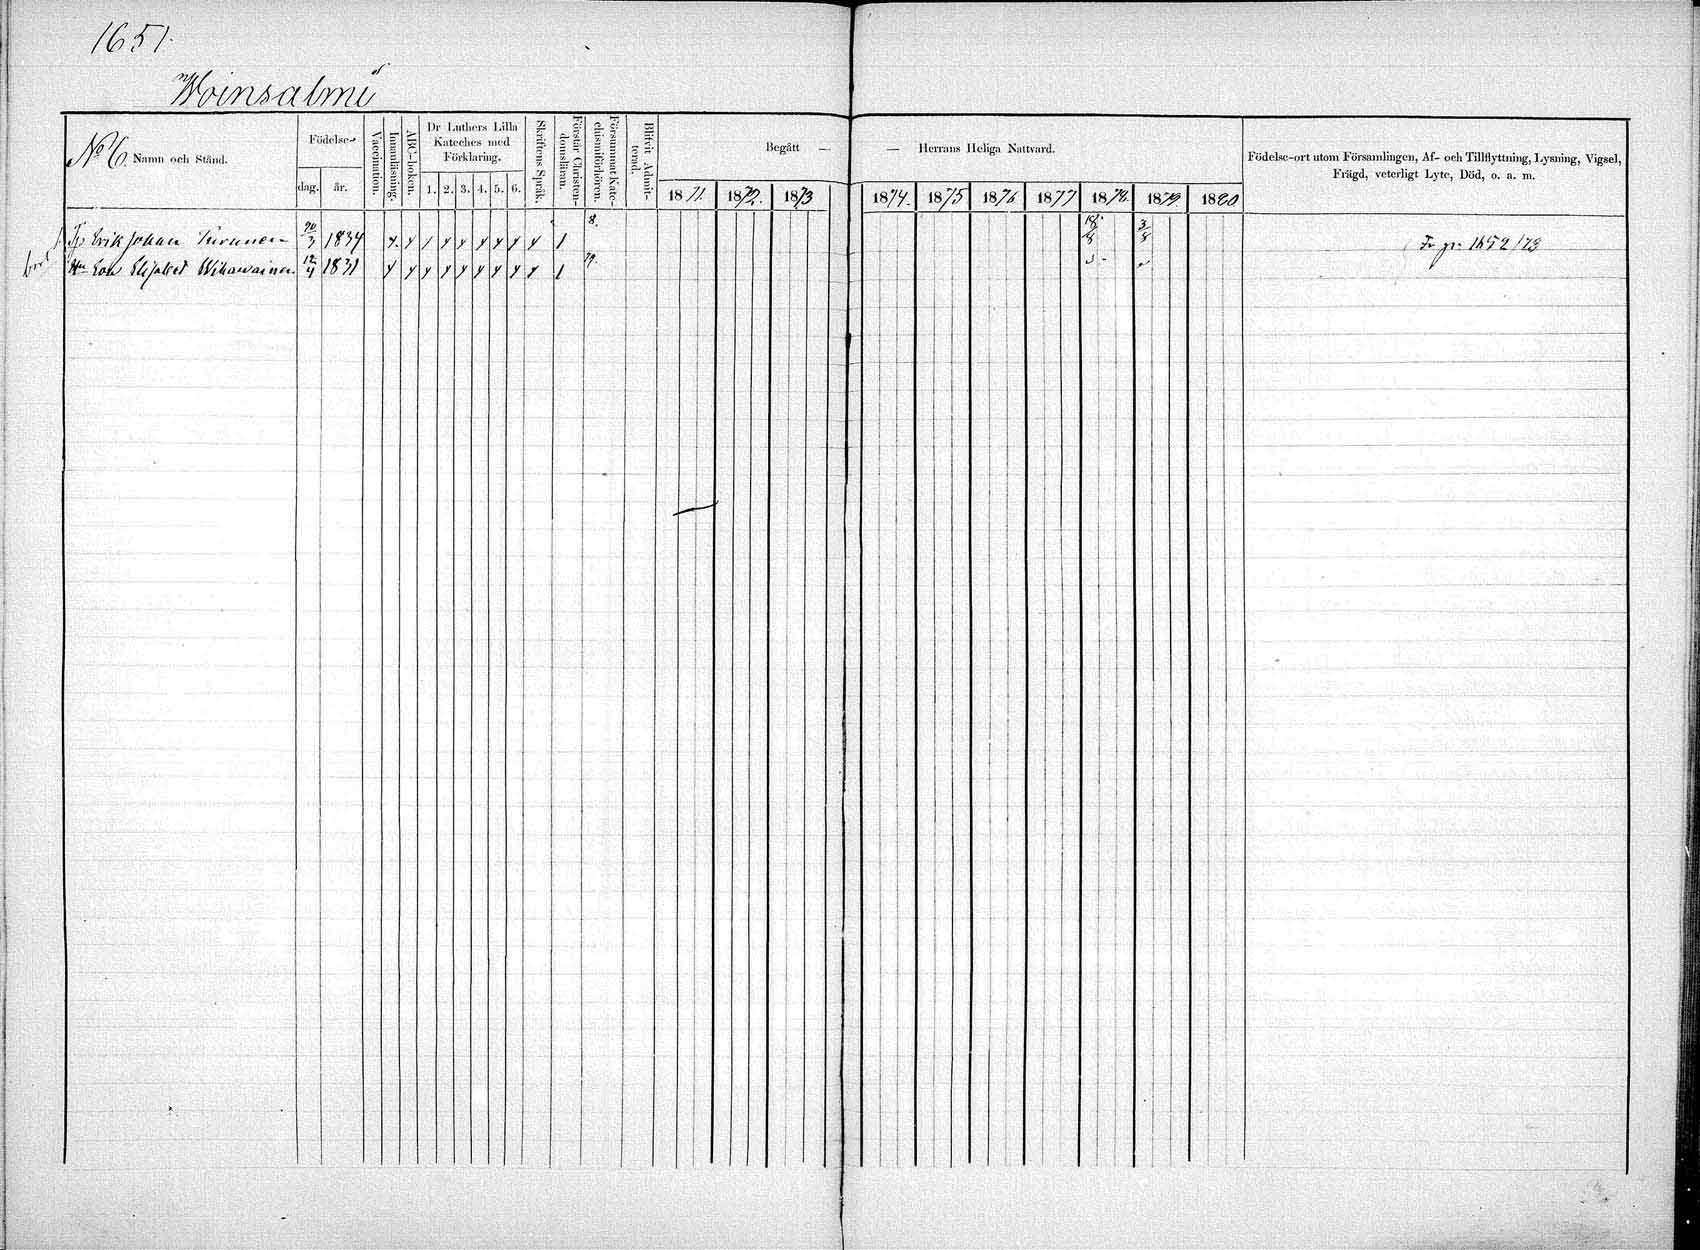 1651.
Woinsalmi
No 6. Namn och Stånd.
Födelse-
dag. år.
Vaccination.
Innanläsning.
ABC-boken.
Dr Luthers Lilla
Kateches med
Förklaring.
1. 2. 3. 4. 5. 6.
Skriftens Språk.
Förstår Christen-
domsläran.
Försummat Kate-
chismiförhören.
Blifvit Admit-
terad.
Begått — — Herrans Heliga Nattvard.
1871. 1872. 1873 1874. 1875 1876 1877 1878. 1879. 1880
Födelse-ort utom Församlingen, Af- och Tillflyttning, Lysning, Vigsel,
Frägd, veterligt Lyte, Död, o. a. m.
Erik Johan 20/3 1834 8. 18/8 3/8 Fr. p. 1652/78
Hu Eva Elisabet Wihawainen 12/4 1831 79.